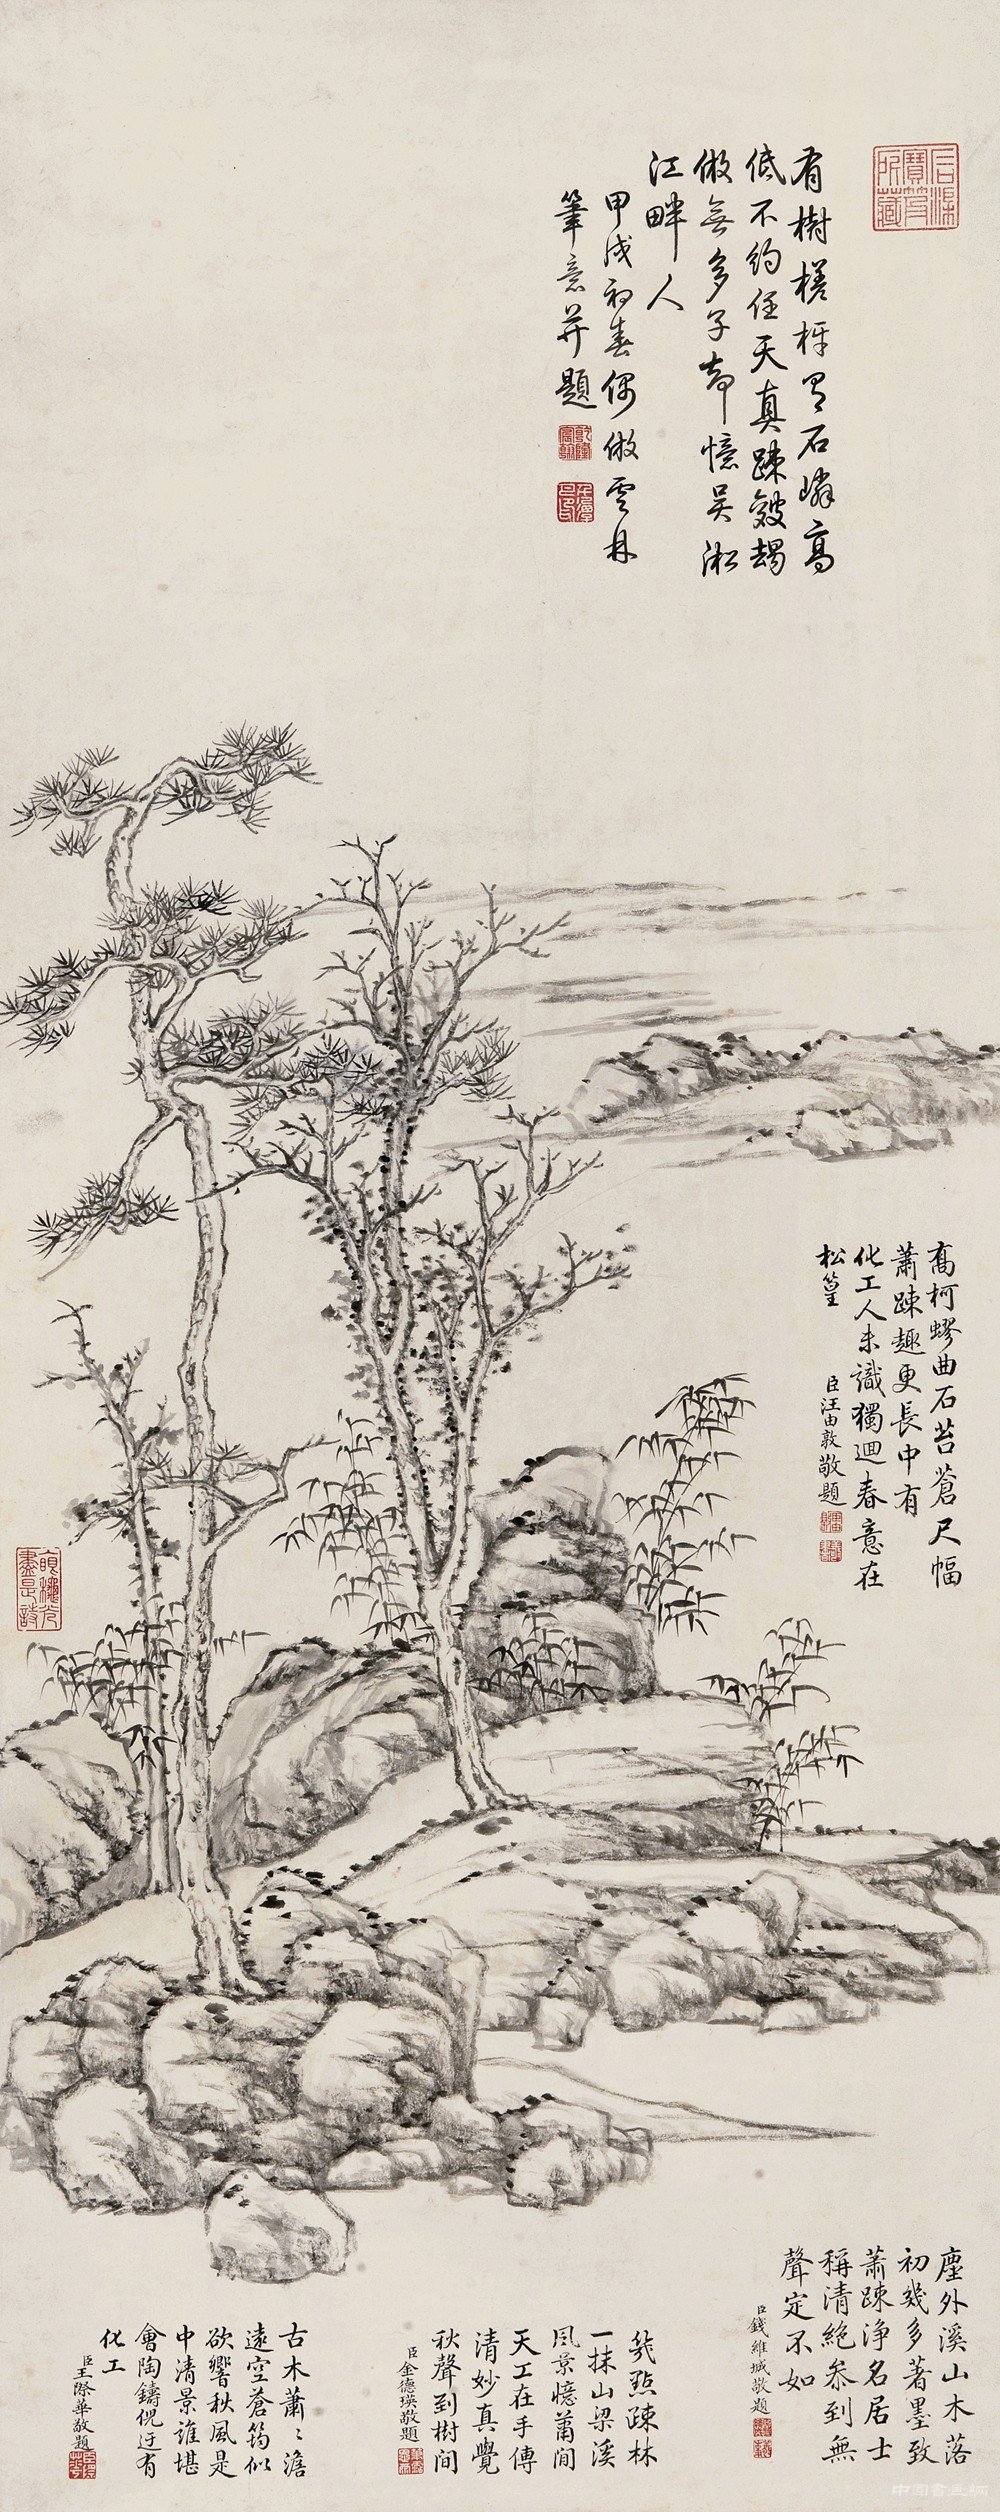 有樹槎枒有石嶙高
低不約任天真疎篁趣
倣無多子却憶吴淞
江畔人
甲戌初春偶倣雲林
筆意并題
石渠
寶笈
所藏
喬柯蟉曲石苔蒼尺幅
蕭疎趣更長中有
化工人未識獨迴春意在
松篁
臣汪由敦敬題
塵外溪山木落
初幾多著墨致
蕭疎淨名居士
稱清絶叅到無
聲定不如
臣錢維城敬題
幾點疎林
一抹山梁溪
風景憶蕭閒
天工在手傳
清妙真覺
秋聲到樹間
臣金德瑛敬題
古木蕭〻澹
遠空蒼筠似
欲響秋風是
中清景誰堪
會陶鑄倪迂有
化工
臣王際華敬題
中国書画網